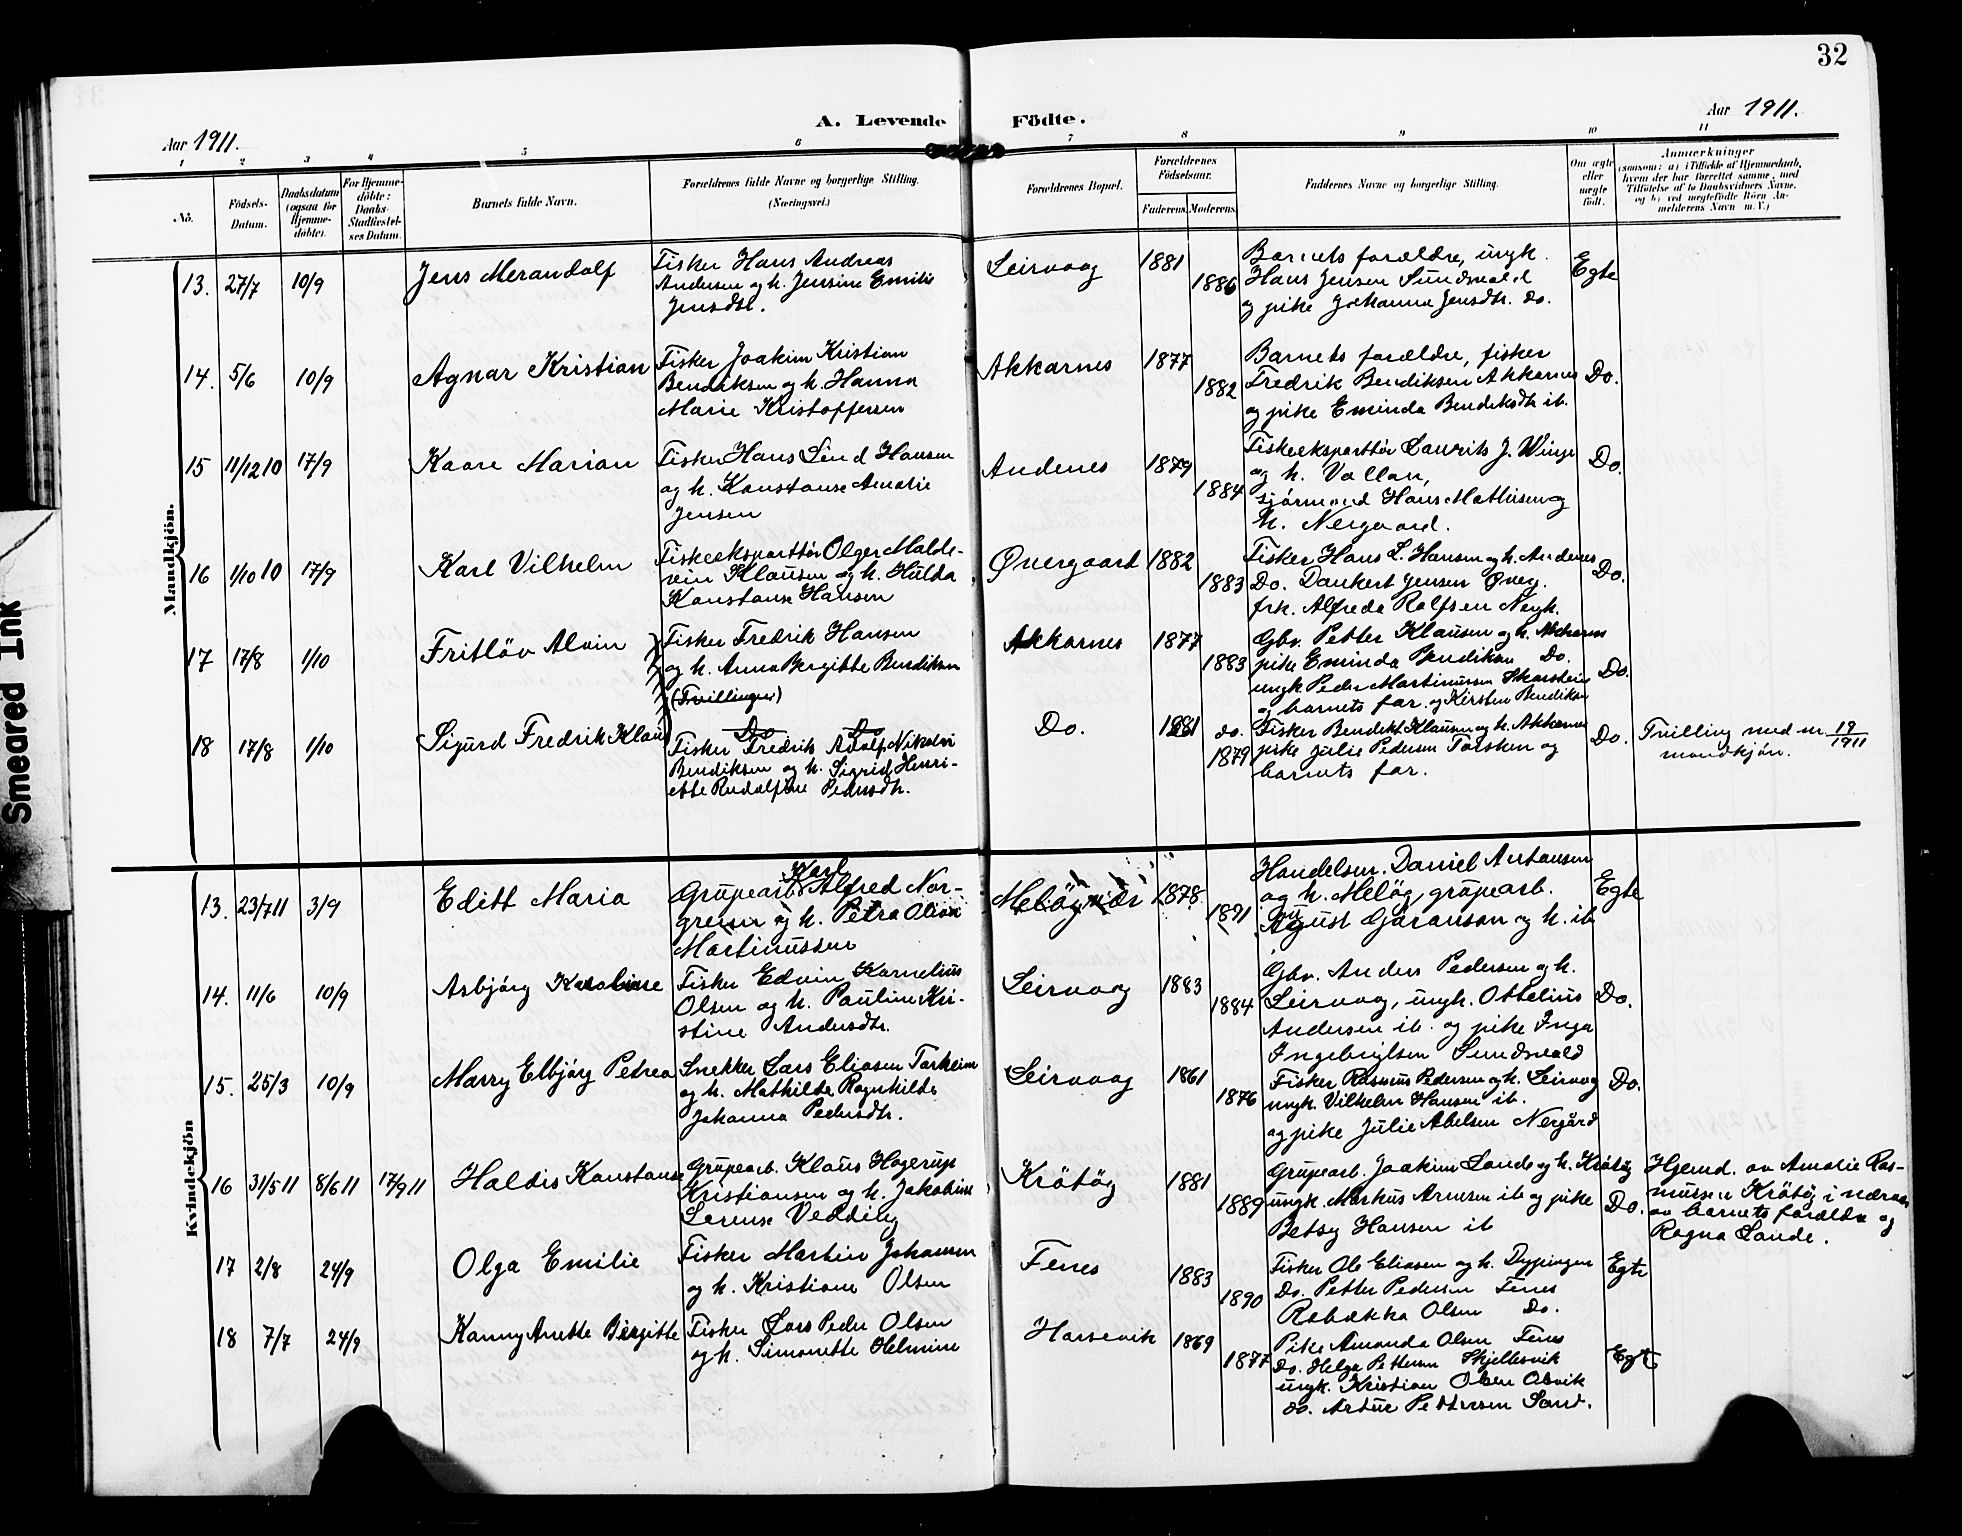 32
Aar 1911.
A. Levende Födte.
Aar 1911.
1 2 3 4 5 6 7 8 9 10 11
No.
Födsels-
Datum.
Daabsdatum
(ogsaa for
Hjemme-
döbte).
For Hjemme-
döbte:
Daabs-
Stadfæstel-
ses Datum.
Barnets fulde Navn.
Forældrenes fulde Navne og borgerlige Stilling.
(Næringsvei.)
Forældrenes Bopæl.
Forældrenes
Födselsaar.
Faderens. Moderens.
Faddernes Navne og borgerlige Stilling.
Om ægte
eller
uægte
födt.
Anmærkninger
(saasom: a) i Tilfælde af Hjemmedaab,
hvem der har forrettet samme, med
Tilföielse af to Daabsvidners Navne.
og b) ved uægtefödte Börn An-
melderens Navn m. V.)
Mandkjön.
13. 27/7 10/9 Jens Merandolf
Fisker Hans Andreas
Andersen og h. Jensine Emilie
Jensdtr.
Leirvaag 1881 1886
Barnets forældre, ungk.
Hans Jensen Sundsvold
og pike Johanna Jensdtr. do.
Egte
14. 5/6 10/9 Agnar Kristian
Fisker Joakim Kristian
Bendiksen og h. Hanna
Marie Kristoffersen
Akkarnes 1877 1882
Barnets forældre, fisker
Fredrik Bendiksen Akkarnes
og pike Eminda Bendiksdtr ib.
Do.
15 11/12 10 17/9 Kaare Marian
Fisker Hans Lind Hansen
og h. Konstanse Amalie
Jensen
Andenes 1879 1884
Fiskeeksportör Laurits J. Winge
og h. Vollan,
sjømand Hans Mathisen og
h. Nergaard.
Do.
16 1/10 10 17/9 Karl Vilhelm
Fiskeeksportör Olger Malde-
vin Klausen og h. Hulda
Konstanse Hansen
Øvergaard 1882 1883
Fisker Hans L. Hansen og h. Andenes
Do. Dankert Jensen Øverg.
frk. Alfreda Rolfsen Nergh.
Do.
17 17/8 1/10 Fritlöv Alvin
Fisker Fredrik Hansen
og h. Anna Bergitte Bendiksen
(Tvillinger)
Akkarnes 1877 1883
Gbr. Petter Klausen og h. Akkarnes
pike Eminda Bendiksen Do.
ungk Peder Martinussen Skarstein
og barnets far. og Kirsten Bendiksen
Do.
18 17/8 1/10 Sigurd Fredrik Klaus
Do Do
Fisker Fredrik Adolf Nikolai
Bendiksen og h. Sigrid Henri-
ette Rudolfine Pedersdtr.
Do. 1881 do. 1879
Fisker Bendikt Klausen og h. Akkarnes
pike Julie Pedersen Torsken og
barnets far.
Do.
Tvilling med nr 19/1911
mandkjøn.
Kvindekjön
13. 23/7 11 3/9 Editt Maria
Karl
Grubearb. Alfred Nor-
green og h. Petra Olivie
Martinussen
Meløyvær 1878 1891
Handelsm. Daniel Antonsen
og h. Meløy, grubearb.
August Göranson og h. ib
Egte
14. 11/6 10/9 Asbjörg Karoline
Fisker Edvin Kornelius
Olsen og h. Pauline Kri-
stine Andersdtr.
Leirvaag 1883 1884
Gbr. Anders Pedersen og h.
Leirvaag, ungk. Ottelius
Andersen ib. og pike Inga
Ingebrigtsen Sundsvold
Do.
15. 25/3 10/9 Marry Elbjörg Petrea
Snekker Lars Eliasen Torheim
og h. Mathilde Ragnhilde
Johanna Pedersdtr.
Leirvaag 1861 1876
Fisker Rasmus Pedersen og h. Leirvaag
ungk. Vilhelm Hansen ib.
og pike Julie Abelsen Nergård
Do.
16 31/5 11 8/6 11 17/9 11 Haldis Konstanse
Grubearb. Klaus Hagerup
Kristiansen og h. Jakobine
Lerense Vedding
Krötög 1881 1889
Grubearb. Joakim Lande og h. Krötög
ungk. Markus Arnesen ib og pike
Betsy Hansen ib
Do.
Hjemd. av Amalie Ras-
mussen Krötög i nærvær
av barnets forældre og
Ragna Lande.
17 2/8 24/9 Olga Emilie
Fisker Martin Johansen
og h. Kristiane Olsen
Fenes 1883 1890
Fisker Ole Eliasen og h. Dypingen
Do. Petter Pedersen Fenes
Rebækka Olsen Do.
Egte
18 7/7 24/9 Kanny Anette Birgitte
Fisker Lars Peder Olsen
og h. Simonette Helmine
Harsevik 1869 1877
Pike Amanda Olsen Fenes
Do. Helga Pettersen Skjellesvik
ungk. Kristian Olsen Olsvik
do. Artur Pettersen Sand.
Egte
Smeared Ink